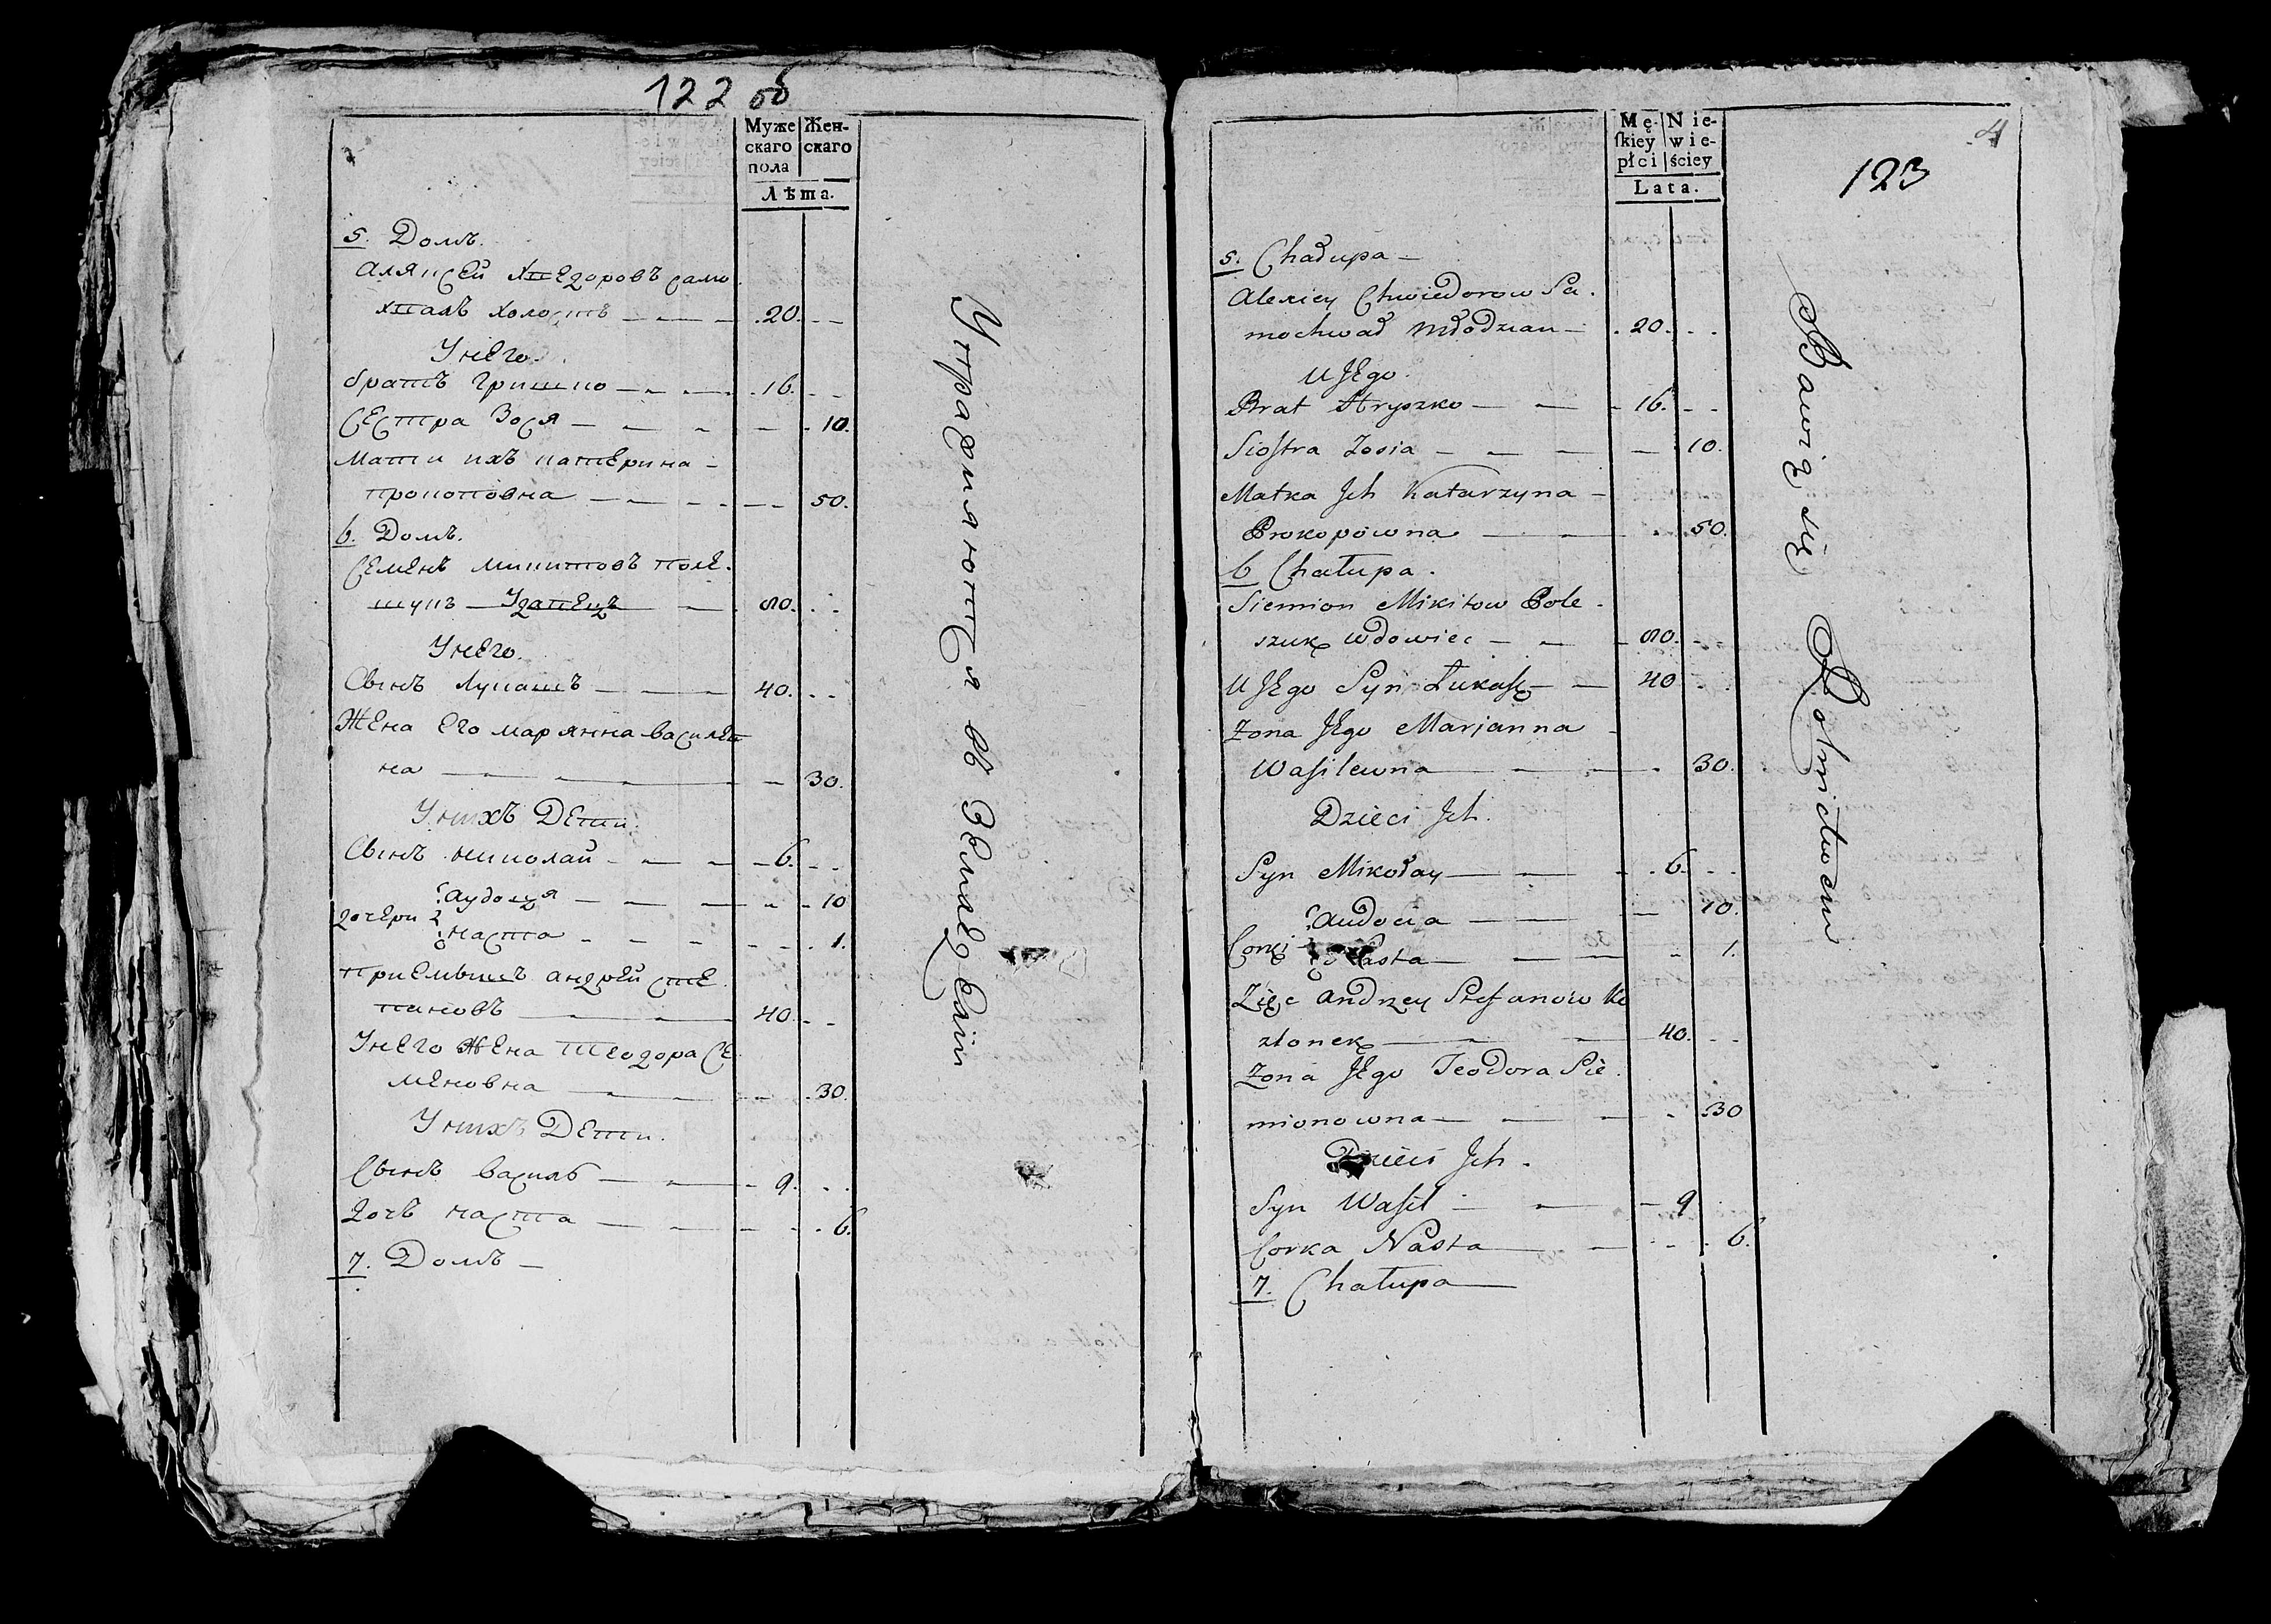 122 об
Муже Жен-
скаго скаго
пола
Лѣта.
5. Домъ.
Аляксей Хтедоровъ само
хталъ холостъ 20.
Унего.
братъ Гришко 16.
Сестра Зося 10.
Мати ихъ катерина
прокоповна 50.
6. Домъ.
Семенъ Микитовъ поле.
шукъ Удавецъ 80.
Унего.
Сынъ Лукашъ 40.
Жена Его марянна василев
на 30.
Унихъ Дети.
Сынъ николай 6.
аудоця 10
дочери
наста 1.
приемышъ андрей сте
пановъ 40.
Унего Жена Теодора Се
меновна 30.
Унихъ Дети.
Сынъ василь 9.
Дочъ наста 6.
7. Домъ
Упражняются въ Земледелии
Mę- Nie-
ſkiey wie-
płci ściey
Lata.
4
123
5. Chałupa
Alexiey Chwiedorow Sa.
mochwał Młodzian 20.
U Jego.
Brat Hryszko 16.
Siostra Zosia 10.
Matka Jch Katarzyna
Prokopowna 50.
6 Chałupa.
Siemion Mikitow Pole.
szuk Wdowiec 80.
U Jego Syn Łukasz 40
Zona Jego Marjanna
Wasilewna 30.
Dzieci Jch.
Syn Mikołay 6.
Audocia 10.
Corki
Nasta 1.
Zięc Andrzey Stefanow Ko
złonek 40.
Zona Jego Teodora Sie.
mionowna 30
Dzieci Jch.
Syn Wasil 9
Corka Nasta 6.
7. Chałupa
Bawią się Rolnictwem